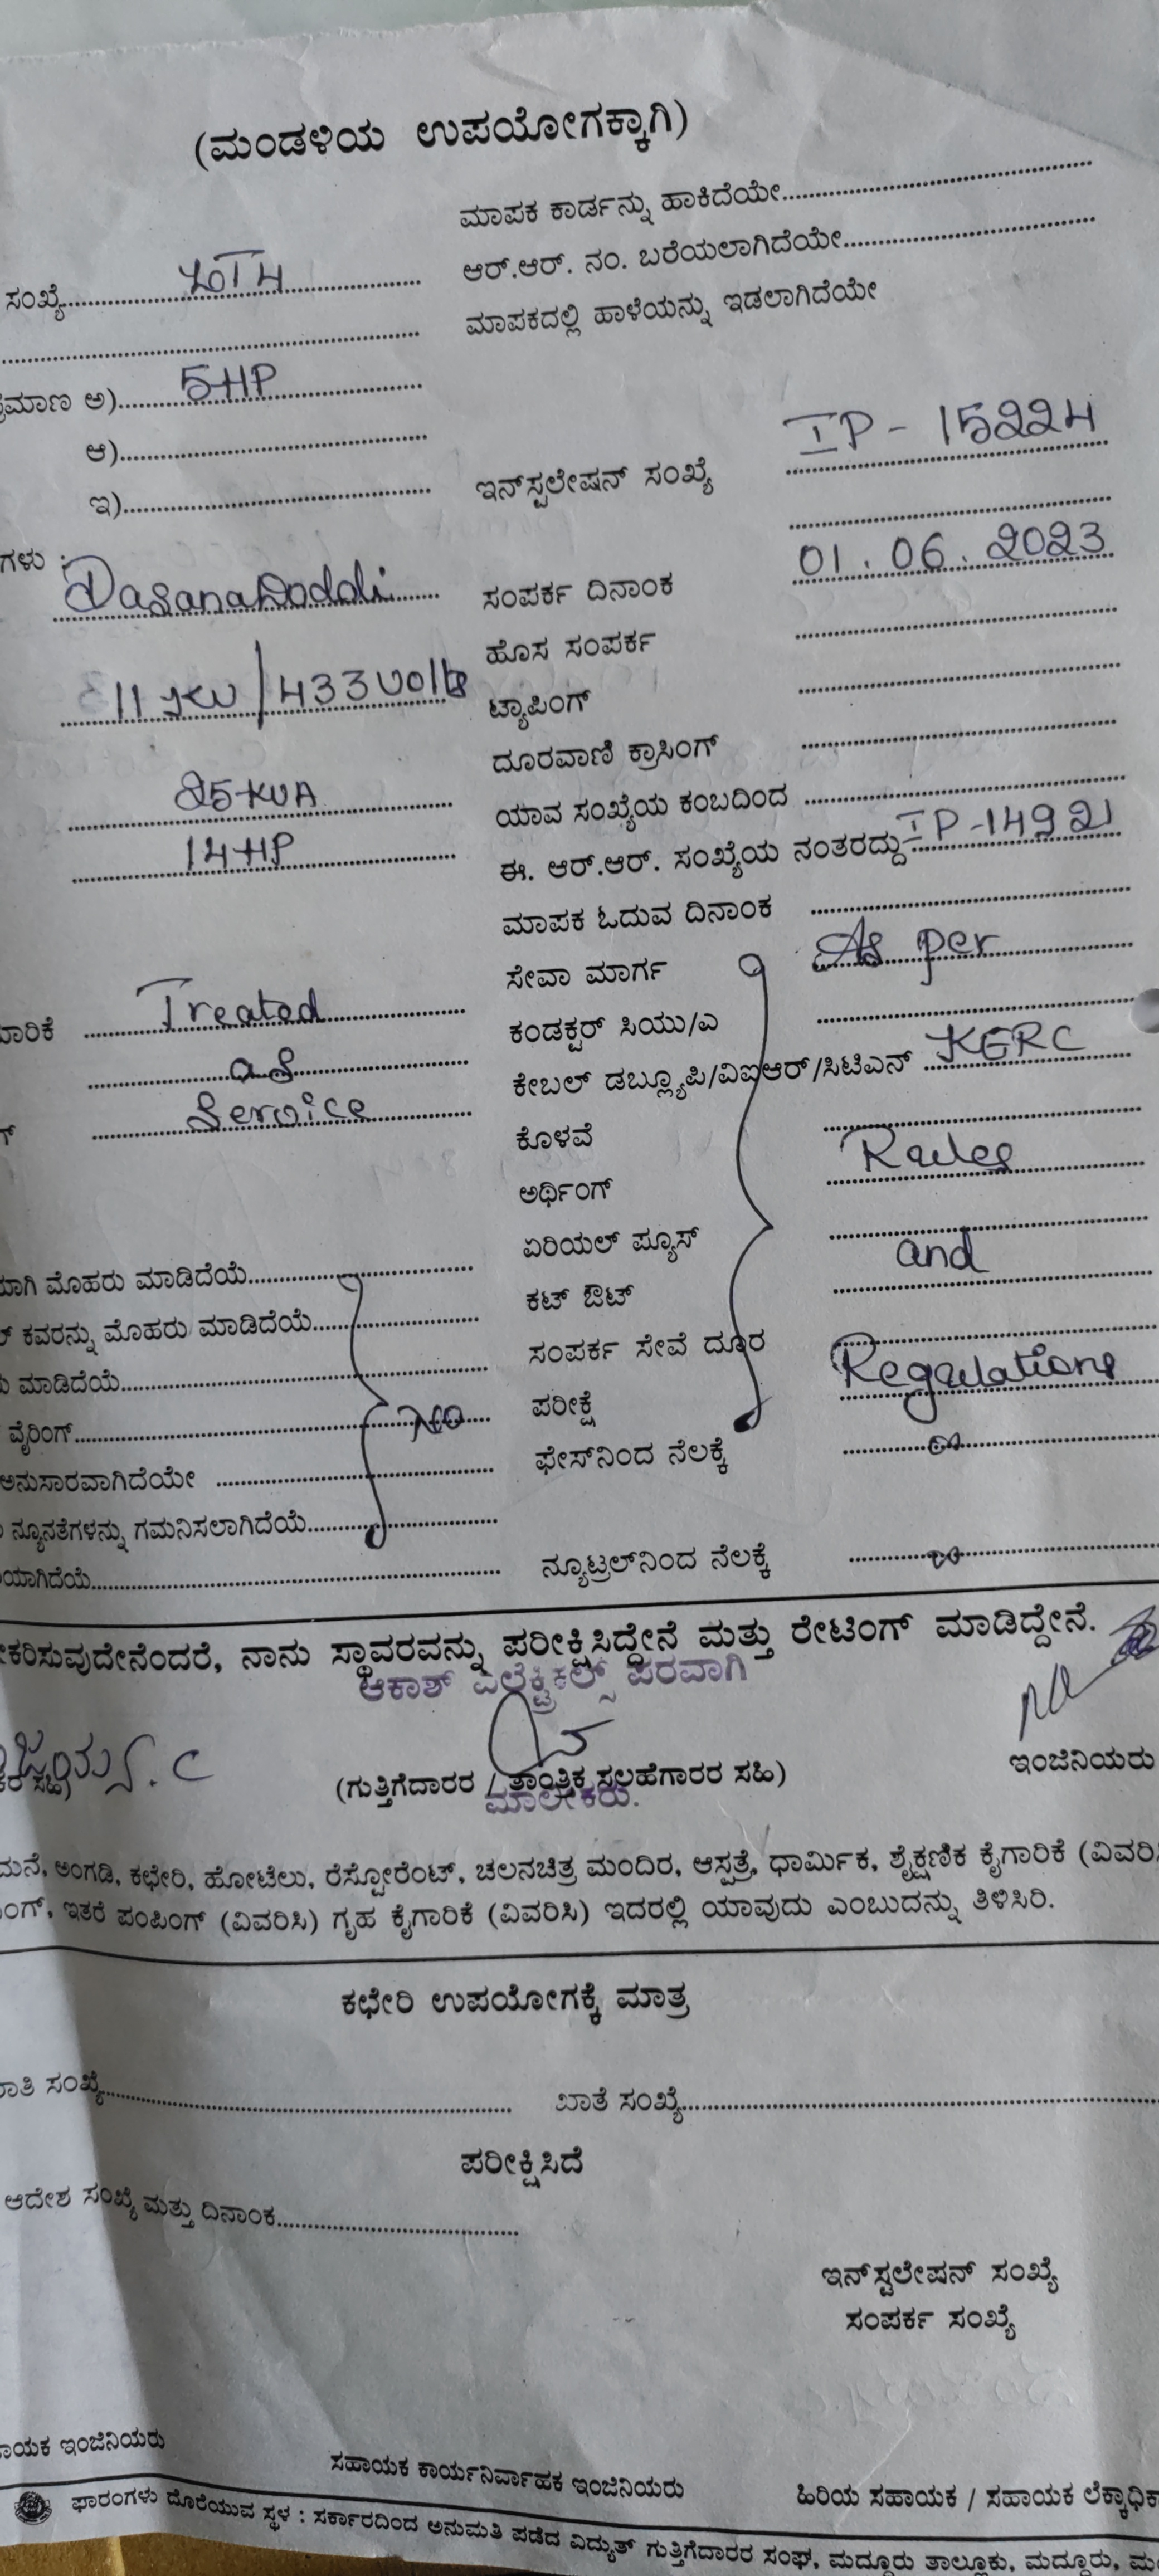 (ಮಂಡಳಿಯ ಉಪಯೋಗಕ್ಕಾಗಿ)
ಮಾಪಕ ಕಾರ್ಡನ್ನು ಹಾಕಿದೆಯೇ
ಸಂಖ್ಯೆ
ಆರ್.ಆರ್. ನಂ. ಬರೆಯಲಾಗಿದೆಯೇ
ಮಾಪಕದಲ್ಲಿ ಹಾಳೆಯನ್ನು ಇಡಲಾಗಿದೆಯೇ
ಅ) 5HP
ಆ)
ಇ)
ಇನ್‌ಸ್ಟಲೇಷನ್ ಸಂಖ್ಯೆ IP - 15224
ಗಳು :
Dasanadoddi
ಸಂಪರ್ಕ ದಿನಾಂಕ 01.06.2023
ಹೊಸ ಸಂಪರ್ಕ
11 KV / 433 Volts
ಟ್ಯಾಪಿಂಗ್
ದೂರವಾಣಿ ಕ್ರಾಸಿಂಗ್
25 KVA
ಯಾವ ಸಂಖ್ಯೆಯ ಕಂಬದಿಂದ
14 HP
ಈ. ಆರ್.ಆರ್. ಸಂಖ್ಯೆಯ ನಂತರದ್ದು IP-14921
ಮಾಪಕ ಓದುವ ದಿನಾಂಕ
ಸೇವಾ ಮಾರ್ಗ As per
Treated
ಕಂಡಕ್ಟರ್ ಸಿಯು/ಎ
as
ಕೇಬಲ್ ಡಬ್ಲ್ಯೂಪಿ/ವಿಐಆರ್/ಸಿಟಿಎನ್ KERC
Service
ಕೊಳವೆ
Rules
ಅರ್ಥಿಂಗ್
ಏರಿಯಲ್ ಫ್ಯೂಸ್
and
ಮೊಹರು ಮಾಡಿದೆಯೆ
ಕಟ್ ಔಟ್
ಕವರನ್ನು ಮೊಹರು ಮಾಡಿದೆಯೆ
ಸಂಪರ್ಕ ಸೇವೆ ದೂರ
Regulations
ಮಾಡಿದೆಯೆ
ಪರೀಕ್ಷೆ
ವೈರಿಂಗ್
ಫೇಸ್‌ನಿಂದ ನೆಲಕ್ಕೆ
ಅನುಸಾರವಾಗಿದೆಯೇ
ನ್ಯೂನತೆಗಳನ್ನು ಗಮನಿಸಲಾಗಿದೆಯೆ
ನ್ಯೂಟ್ರಲ್‌ನಿಂದ ನೆಲಕ್ಕೆ
ಕರಿಸುವುದೇನೆಂದರೆ, ನಾನು ಸ್ಥಾವರವನ್ನು ಪರೀಕ್ಷಿಸಿದ್ದೇನೆ ಮತ್ತು ರೇಟಿಂಗ್ ಮಾಡಿದ್ದೇನೆ.
ಆಕಾಶ್ ಎಲೆಕ್ಟ್ರಿಕಲ್ಸ್ ಪರವಾಗಿ
(ಗುತ್ತಿಗೆದಾರರ / ತಾಂತ್ರಿಕ ಸಲಹೆಗಾರರ ಸಹಿ)
ಇಂಜಿನಿಯರು
ಮಾಲೀಕರು.
ಮನೆ, ಅಂಗಡಿ, ಕಛೇರಿ, ಹೋಟೆಲು, ರೆಸ್ಟೋರೆಂಟ್, ಚಲನಚಿತ್ರ ಮಂದಿರ, ಆಸ್ಪತ್ರೆ, ಧಾರ್ಮಿಕ, ಶೈಕ್ಷಣಿಕ ಕೈಗಾರಿಕೆ
ಇತರೆ ಪಂಪಿಂಗ್ (ವಿವರಿಸಿ) ಗೃಹ ಕೈಗಾರಿಕೆ (ವಿವರಿಸಿ) ಇದರಲ್ಲಿ ಯಾವುದು ಎಂಬುದನ್ನು ತಿಳಿಸಿರಿ.
ಕಛೇರಿ ಉಪಯೋಗಕ್ಕೆ ಮಾತ್ರ
ಸಂಖ್ಯೆ
ಖಾತೆ ಸಂಖ್ಯೆ
ಪರೀಕ್ಷಿಸಿದೆ
ಆದೇಶ ಸಂಖ್ಯೆ ಮತ್ತು ದಿನಾಂಕ
ಇನ್‌ಸ್ಟಲೇಷನ್ ಸಂಖ್ಯೆ
ಸಂಪರ್ಕ ಸಂಖ್ಯೆ
ಇಂಜಿನಿಯರು
ಸಹಾಯಕ ಕಾರ್ಯನಿರ್ವಾಹಕ ಇಂಜಿನಿಯರು
ಹಿರಿಯ ಸಹಾಯಕ / ಸಹಾಯಕ
ಫಾರಂಗಳು ದೊರೆಯುವ ಸ್ಥಳ : ಸರ್ಕಾರದಿಂದ ಅನುಮತಿ ಪಡೆದ ವಿದ್ಯುತ್ ಗುತ್ತಿಗೆದಾರರ ಸಂಘ, ಮದ್ದೂರು ತಾಲ್ಲೂಕು, ಮದ್ದೂರು,